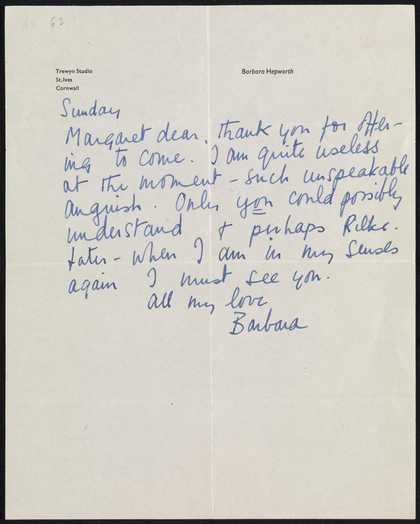 62
Trewyn Studio
St.Ives
Cornwall
Barbara Hepworth
Sunday
Margaret dear, thank you for offer-
ing to come. I am quite useless
at the moment – such unspeakable
anguish. Only you could possibly
understand & perhaps Rilke.
Later – when I am in my senses
again I must see you.
all my love
Barbara